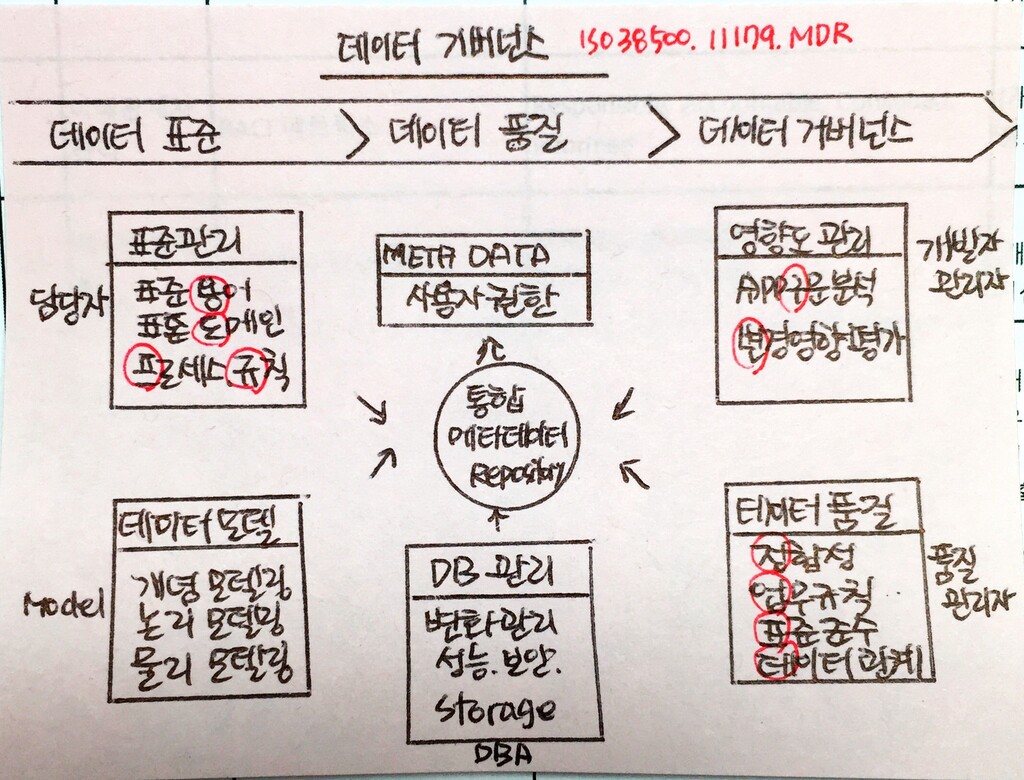 데이터 거버넌스 ISO38500. 11179. MDR
데이터 표준 데이터 품질 데이터 거버넌스
표준관리
표준 용어
표준 도메인
프로세스.규칙
담당자
META DATA
사용자 권한
영향도 관리
APP구문분석
변경영향평가
개발자
관리자
통합
메타데이터
Repository
데이터 모델
개념 모델링
논리 모델링
물리 모델링
Model
DB 관리
변화관리
성능.보안.
Storage
DBA
데이터 품질
정합성
업무규칙
표준준수
데이터관계
품질
관리자